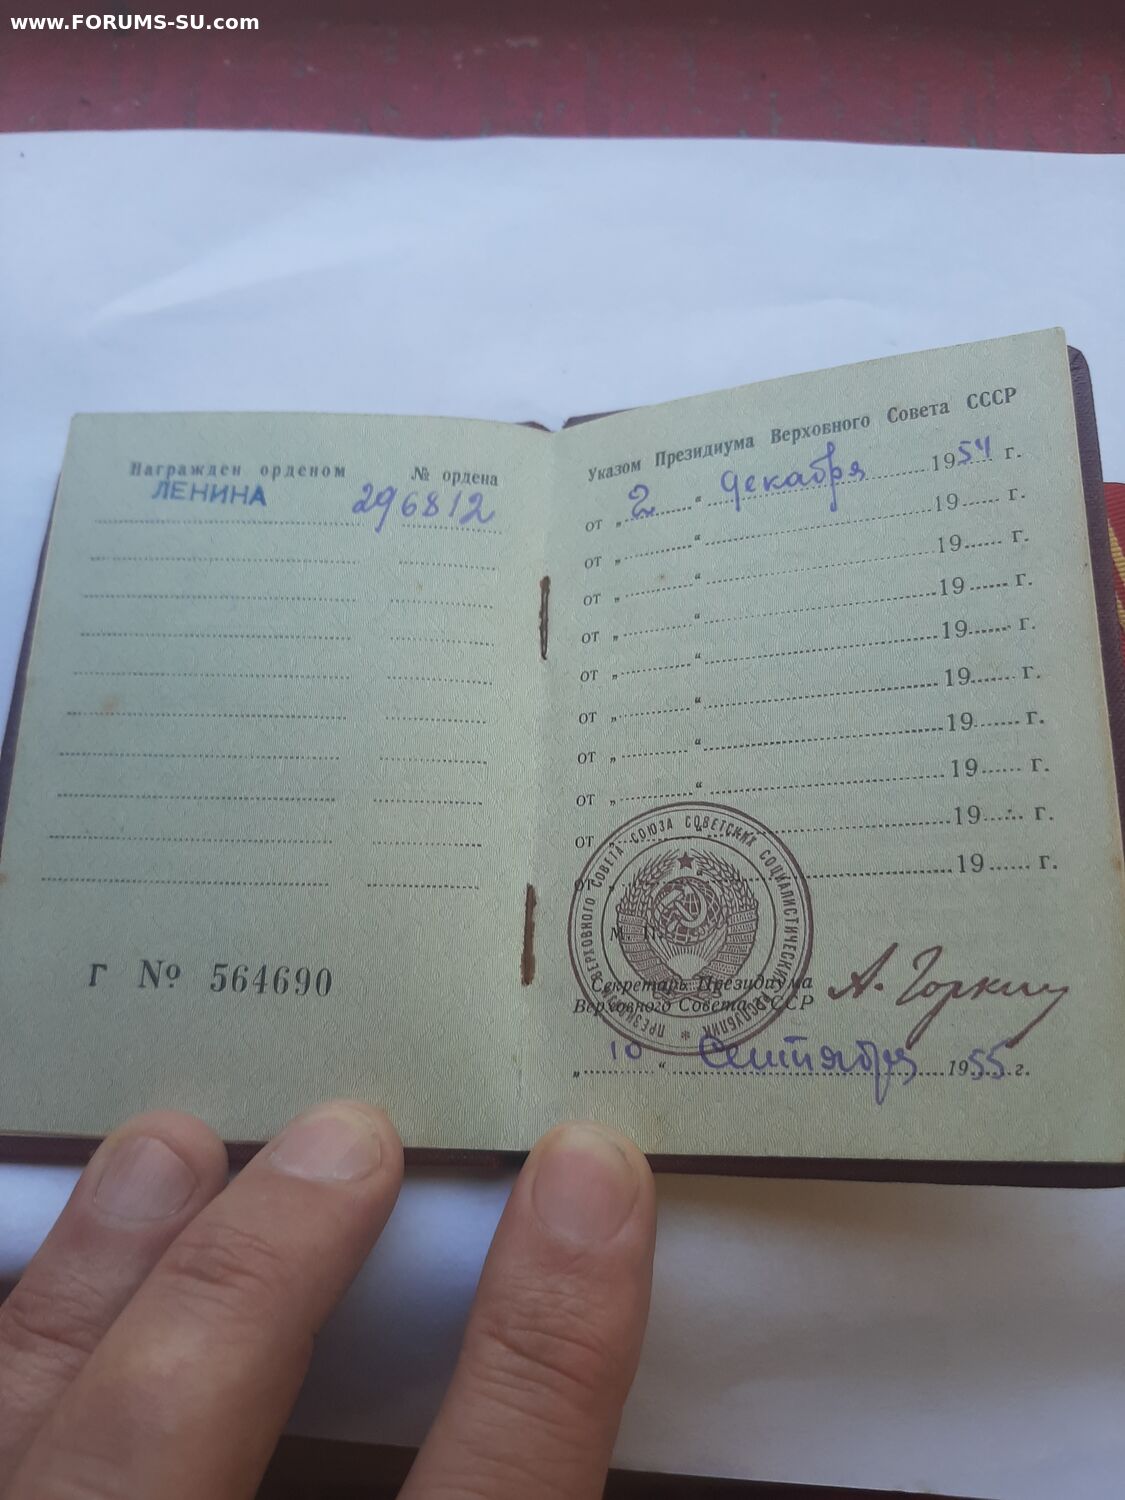 www.FORUMS-SU.com
Награжден орденом № ордена
ЛЕНИНА 296812
Г № 564690
Указом Президиума Верховного Совета СССР
от „ 2 “ декабря 1954 г.
от „ “ 19 г.
от „ “ 19 г.
от „ “ 19 г.
от „ “ 19 г.
от „ “ 19 г.
от „ “ 19 г.
от „ “ 19 г.
от „ “ 19 г.
от „ “ 19 г.
ПРЕЗИДИУМ ВЕРХОВНОГО СОВЕТА СОЮЗА СОВЕТСКИХ СОЦИАЛИСТИЧЕСКИХ РЕСПУБЛИК
М. П.
Секретарь Президиума
Верховного Совета СССР
А. Горкин
„ 10 “ Сентября 1955 г.